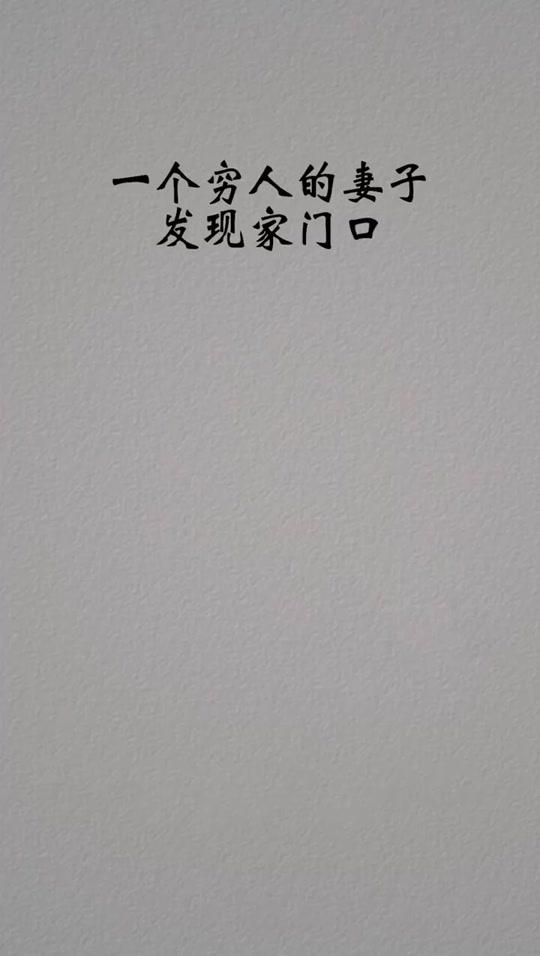 一个穷人的妻子
发现家门口